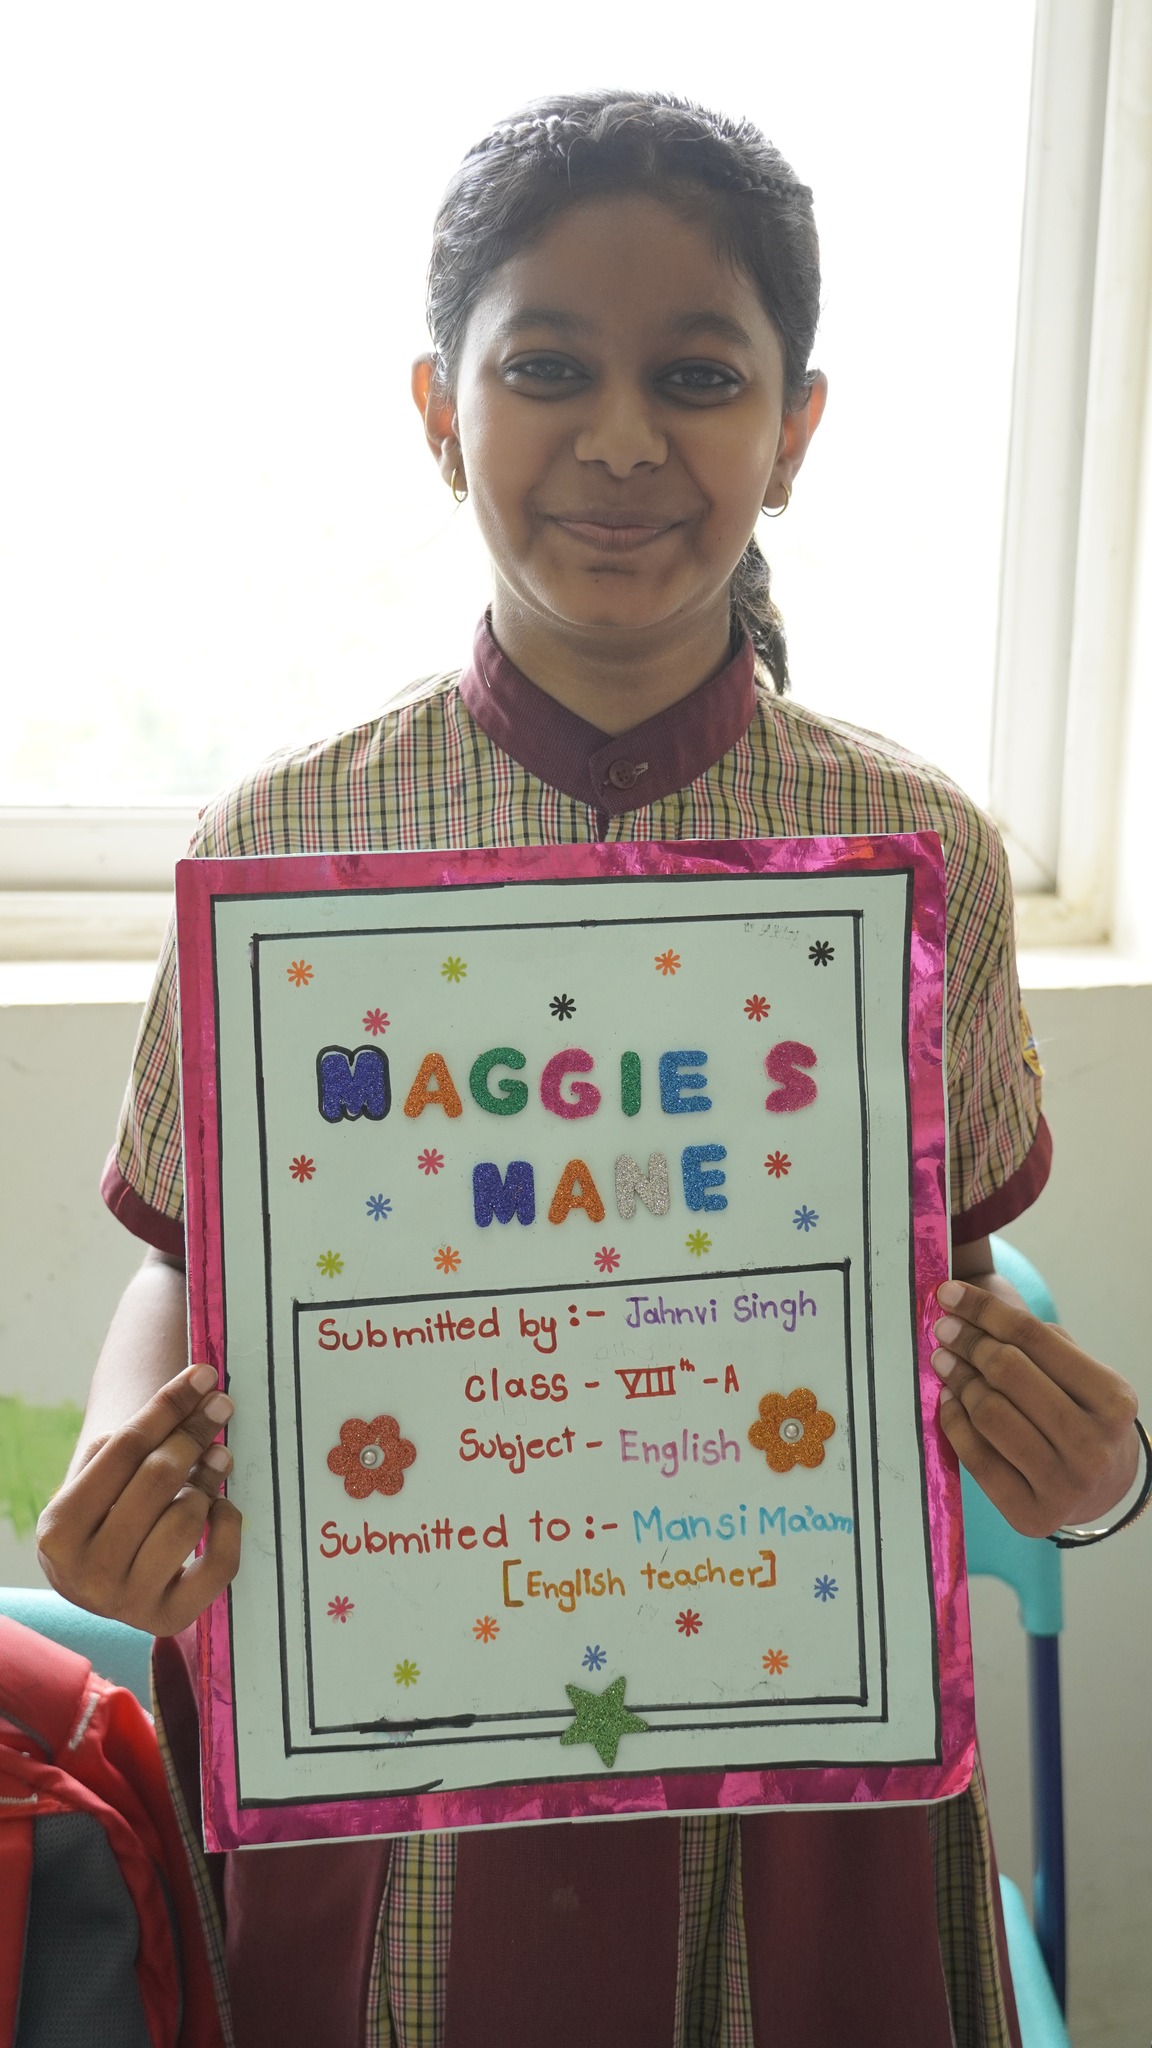 MAGGIE S
MANE
Submitted by :- Jahnvi Singh
Class - VIIIth - A
Subject - English
Submitted to :- Mansi Ma'am
[English teacher]